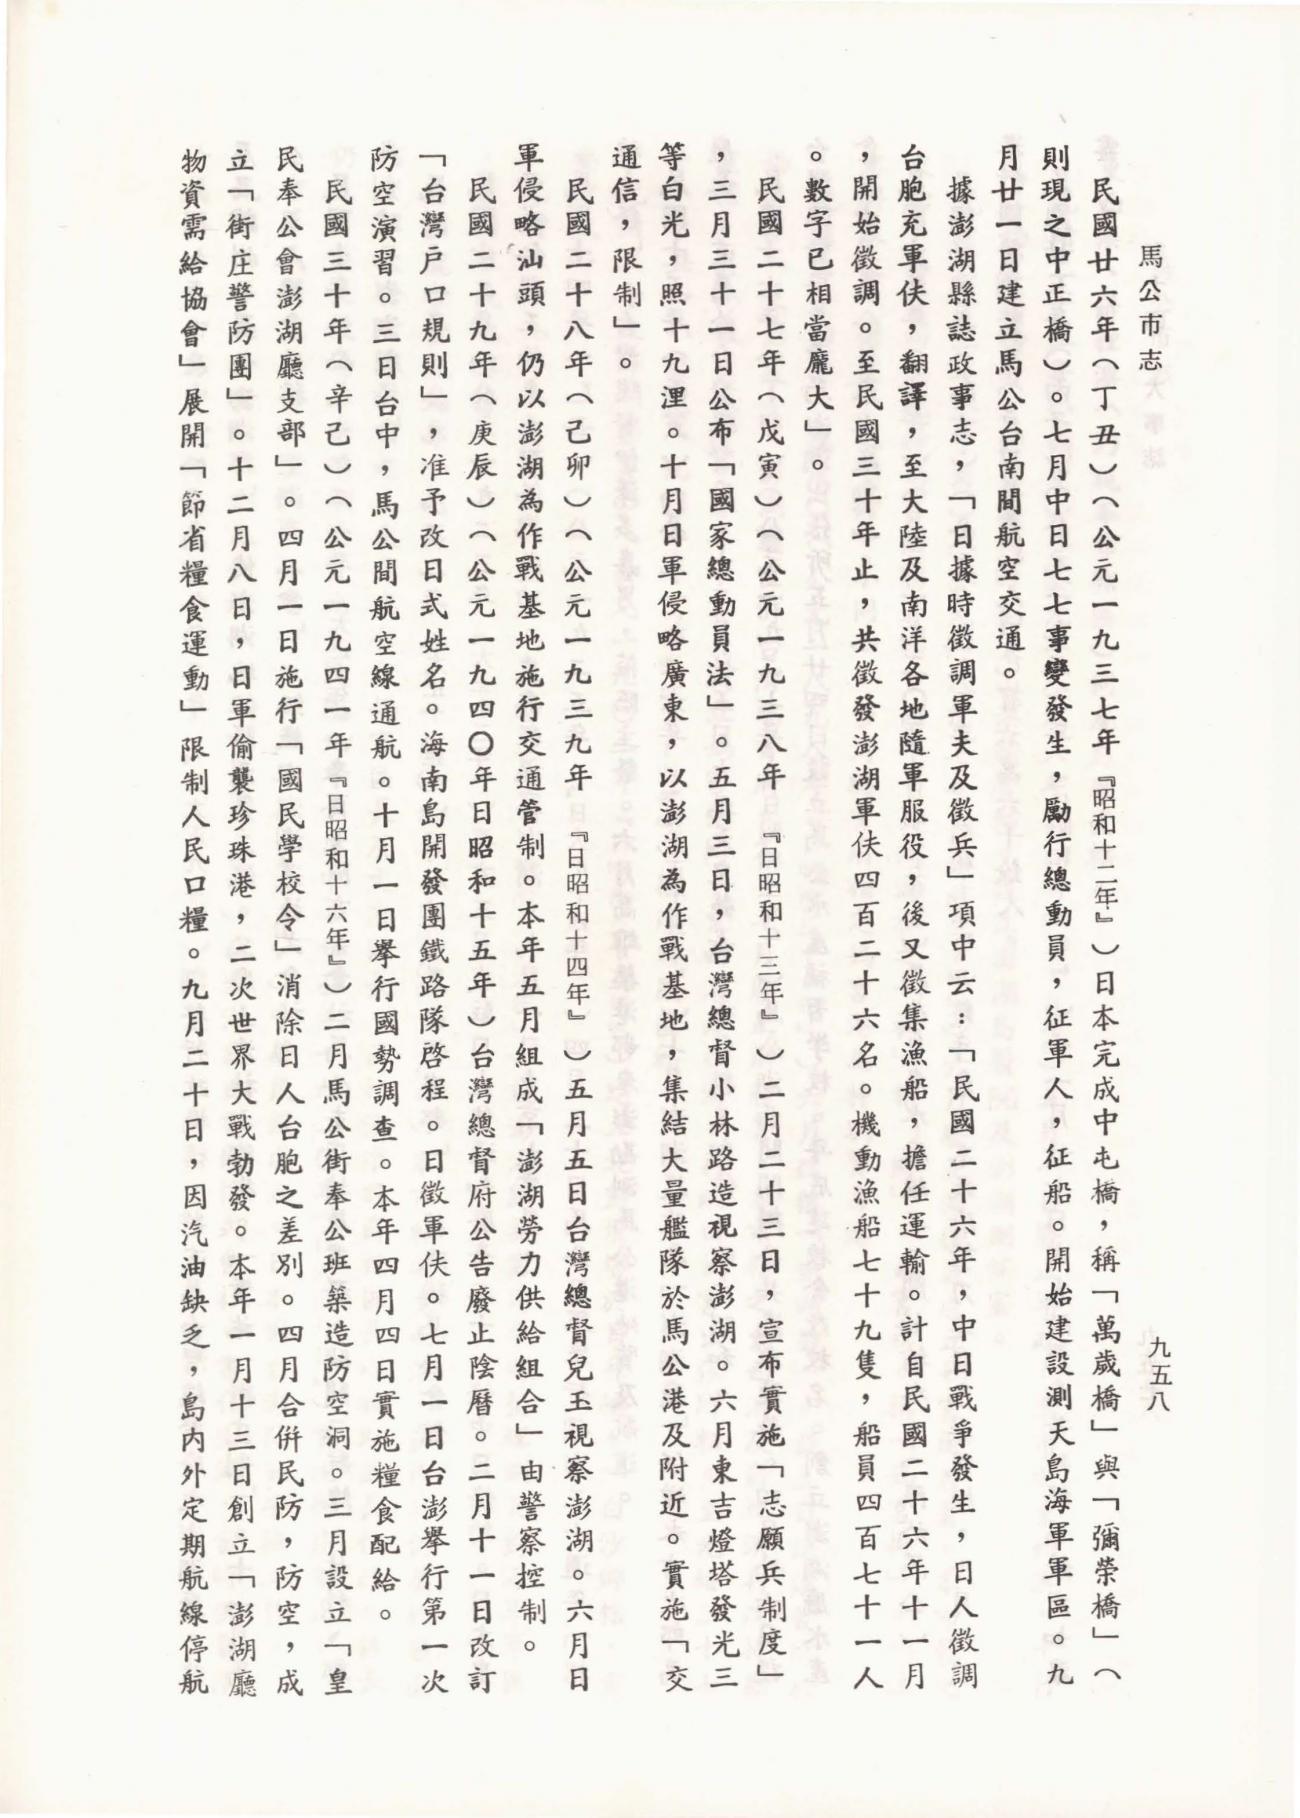 馬公市志
九五八
民國廿六年（丁丑）（公元一九三七年『昭和十二年』）日本完成中屯橋，稱「萬歲橋」與「彌榮橋」（
則現之中正橋）。七月中日七七事變發生，勵行總動員，征軍人，征船。開始建設測天島海軍軍區。九
月廿一日建立馬公台南間航空交通。
據澎湖縣誌政事志，「日據時徵調軍夫及徵兵」項中云：「民國二十六年，中日戰爭發生，日人徵調
台胞充軍伕，翻譯，至大陸及南洋各地隨軍服役，後又徵集漁船，擔任運輸。計自民國二十六年十一月
，開始徵調。至民國三十年止，共徵發澎湖軍伕四百二十六名。機動漁船七十九隻，船員四百七十一人
。數字已相當龐大」。
民國二十七年（戊寅）（公元一九三八年『日昭和十三年』）二月二十三日，宣布實施「志願兵制度」
，三月三十一日公布「國家總動員法」。五月三日，台灣總督小林路造視察澎湖。六月東吉燈塔發光三
等白光，照十九浬。十月日軍侵略廣東，以澎湖為作戰基地，集結大量艦隊於馬公港及附近。實施「交
通信，限制」。
民國二十八年（己卯）（公元一九三九年『日昭和十四年』）五月五日台灣總督兒玉視察澎湖。六月日
軍侵略汕頭，仍以澎湖為作戰基地施行交通管制。本年五月組成「澎湖勞力供給組合」由警察控制。
民國二十九年（庚辰）（公元一九四〇年日昭和十五年）台灣總督府公告廢止陰曆。二月十一日改訂
「台灣戶口規則」，准予改日式姓名。海南島開發團鐵路隊啓程。日徵軍伕。七月一日台澎舉行第一次
防空演習。三日台中，馬公間航空線通航。十月一日舉行國勢調查。本年四月四日實施糧食配給。
民國三十年（辛己）（公元一九四一年『日昭和十六年』）二月馬公街奉公班築造防空洞。三月設立「皇
民奉公會澎湖廳支部」。四月一日施行「國民學校令」消除日人台胞之差別。四月合併民防，防空，成
立「街庄警防團」。十二月八日，日軍偷襲珍珠港，二次世界大戰勃發。本年一月十三日創立「澎湖廳
物資需給協會」展開「節省糧食運動」限制人民口糧。九月二十日，因汽油缺乏，島內外定期航線停航